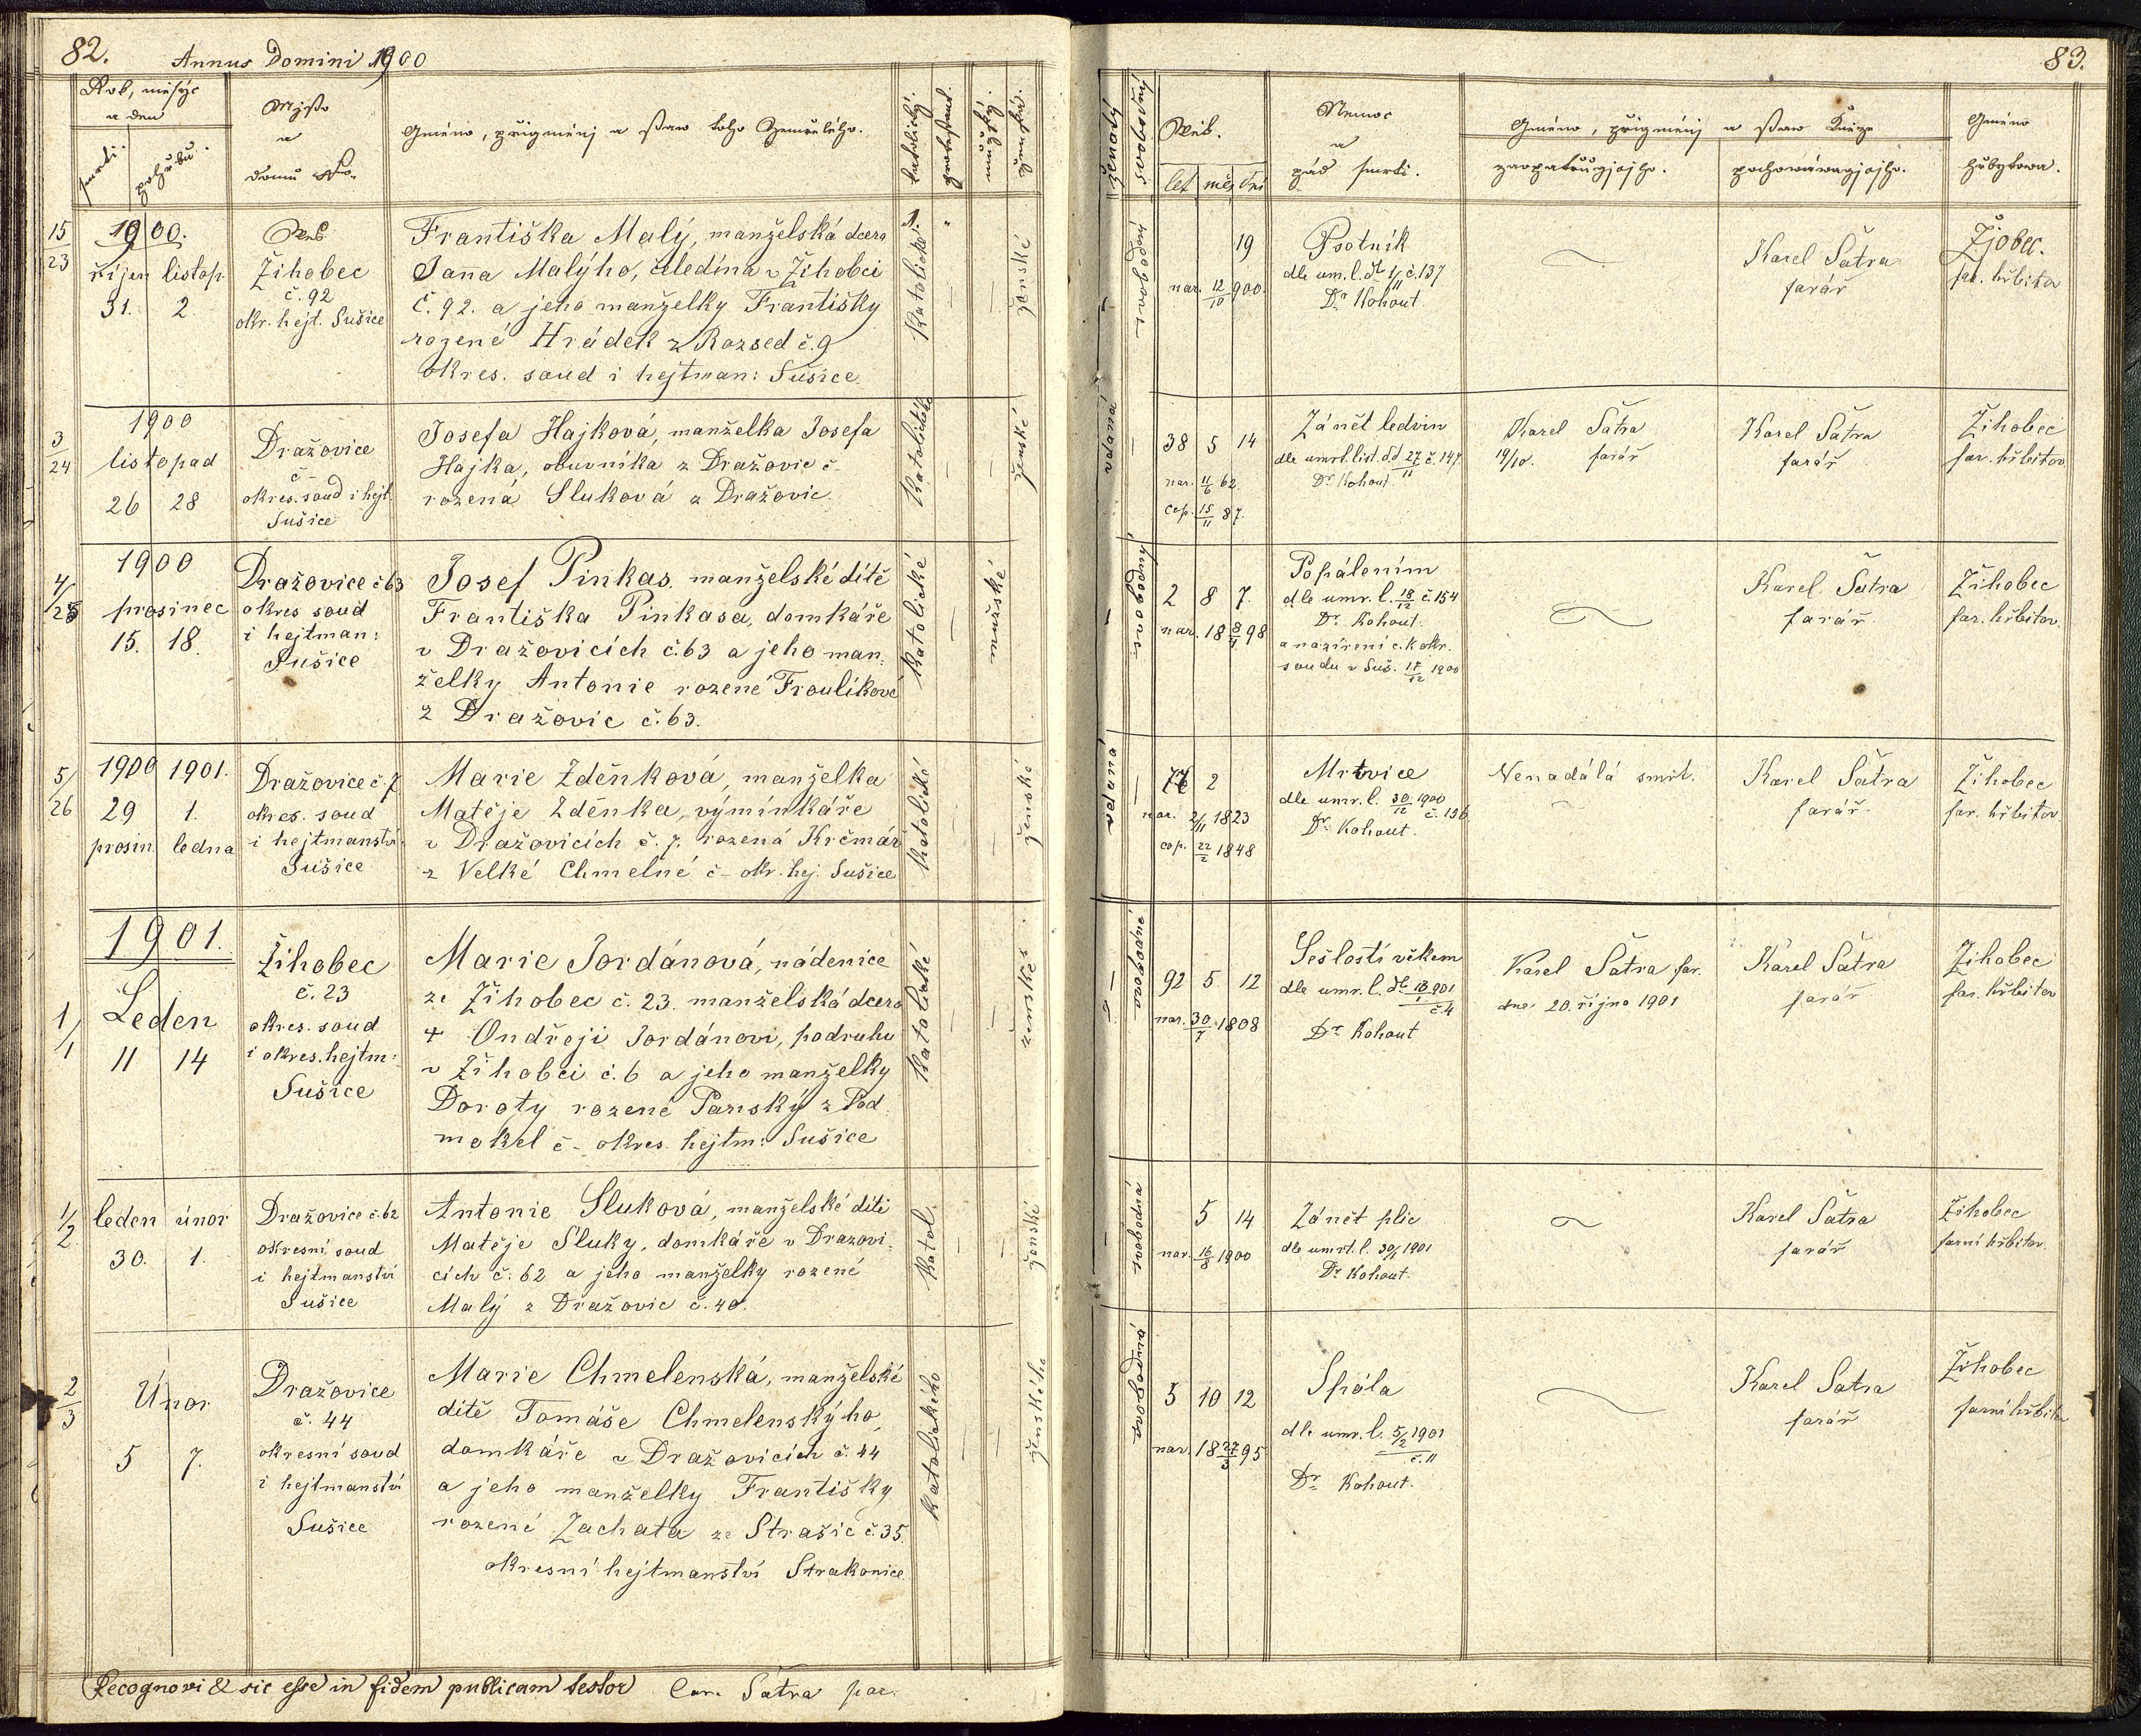 82.
Annus Domini 1900
Rok, měsýc
a den
smrti.
pohřbu.
Mjsto
a
domu No.
Gméno, přigménj a staw toho Zemřelého.
katolický.
protestant.
mužský.
ženská.
15/23
1900.
říjen listop.
31. 2.
Žihobec
č. 92
okr. hejt. Sušice
Františka Malý, manželská dcera
Jana Malýho, čeledína v Žihobci
č. 92. a jeho manželky Františky
rozené Hrádek z Rozsed č. 9
Okres. soud i hejtman: Sušice.
Katolické
ženské
3/24
1900
listopad
26 28
Dražovice
č –
okres. soud i hejt.
Sušice
Josefa Hajková, manželka Josefa
Hajka, obuvníka z Dražovic č –
rozená Sluková z Dražovic.
Katolické
ženské
4/25
1900
prosinec
15. 18.
Dražovice č 63
okres soud
i hejtman:
Sušice
Josef Pinkas. manželské dítě
Františka Pinkasa, domkáře
v Dražovicích č. 63 a jeho man:
želky Antonie rozené Froulíkové
z Dražovic č. 63.
Katolické
mužské
5/26
1900 1901.
29 1.
prosin. ledna
Dražovice č. 7.
okres. soud
i hejtmanství
Sušice
Marie Zděnková, manželka
Matěje Zděnka, výmínkáře
v Dražovicích č. 7. rozená Krčmář
z Velké Chmelné č – okr. hej. Sušice
Katolické
ženské
1/1
1901.
Leden
11 14
Žihobec
č. 23
okres. soud
i okres. hejtm:
Sušice
Marie Jordánová, nádenice
ze Žihobec č. 23. manželská dcera
+ Ondřeji Jordánovi, podruhu
v Žihobci č. 6 a jeho manželky
Doroty rozené Panský z Pod:
mokel č – okres. hejtm: Sušice
Katolické
ženské
1/2
leden únor
30. 1.
Dražovice č. 62
okresní soud
i hejtmanství
Sušice
Antonie Sluková, manželské dítě
Matěje Sluky, domkáře v Dražovi:
cích č. 62 a jeho manželky rozené
Malý z Dražovic č. 40.
Katol.
ženské
2/3
Únor
5 7.
Dražovice
č. 44
okresní soud
i hejtmanství
Sušice
Marie Chmelenská, manželské
dítě Tomáše Chmelenskýho,
domkáře v Dražovicích č. 44
a jeho manželky Františky
rozené Zachata ze Strašic č. 35.
okresní hejtmanství Strakonice.
Katolického
ženského
Recognovi & sic esse in fidem publicam testor Car. Šatra par.
83.
ženatý
svobodný
Wěk.
let měs dní
Nemoc
a
pád smrti.
Gméno, přigménj a staw Kněze
zaopatřugjcjho.
pochowáwagjcjho.
Gméno
hřbytowa.
svobodný
19
nar. 12/10 900.
Psotník
dle um. l. dto 1/11 č. 137
Dr Kohout.
Karel Šatra
farář
Žjobec.
far. hřbitov
vdaná
38 5 14
nar. 11/6 62.
cop. 15/11 87.
Zánět ledvin
dle umrt. list. dd 27/11 č. 147.
Dr Kohout.
Karel Šatra
19/10. farář
Karel Šatra
farář
Žihobec
far. hřbitov.
svobodný
2 8 7.
nar. 18 8/4 98
Popálením
dle umr. l. 18/12 č. 154
Dr Kohout.
a nazření c. k okr.
soudu v Suš. 17/12 1900
Karel Šatra
farář.
Žihobec
far. hřbitov.
vdaná
77 2
nar. 2/11 1823
cop. 22/2 1848
Mrtvice
dle umr. l. 30/12 1900
č. 156
Dr Kohout.
Nenadálá smrt.
Karel Šatra
farář.
Žihobec
far. hřbitov
svobodná
92 5 12
nar. 30/7 1808
Sešlostí věkem
dle umr. l. dto 12/1 901
č. 4
Dr Kohout
Karel Šatra far.
dne 20. října 1901
Karel Šatra
farář
Žihobec
far. hřbitov
svobodná
5 14
nar. 16/8 1900
Zánět plic
dle umrt. l. 30/1 1901
Dr Kohout.
Karel Šatra
farář
Žihobec
farní hřbitov.
svobodná
5 10 12
nar. 18 27/3 95
Spála
dle umr. l. 5/2 1901
č. 11
Dr Kohout.
Karel Šatra
farář
Žihobec
farní hřbitov